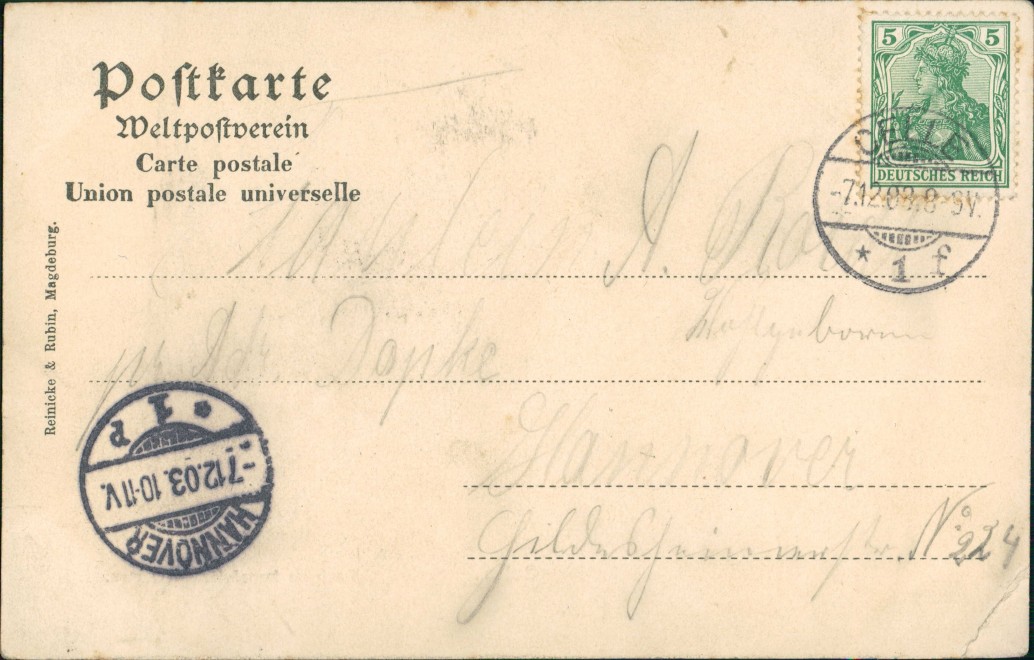 Postkarte
Weltpostverein
Carte postale
Union postale universelle
5 5
DEUTSCHES REICH
CELLE
-7.12.03.8-9V.
* 1 f
Reinicke & Rubin, Magdeburg.
A.
Wohlgeboren
pr. Adr. Dopke
Hannover
Hildesheimerstr. No. 224
HANNOVER
-7.12.03.10-11V.
* 1 p